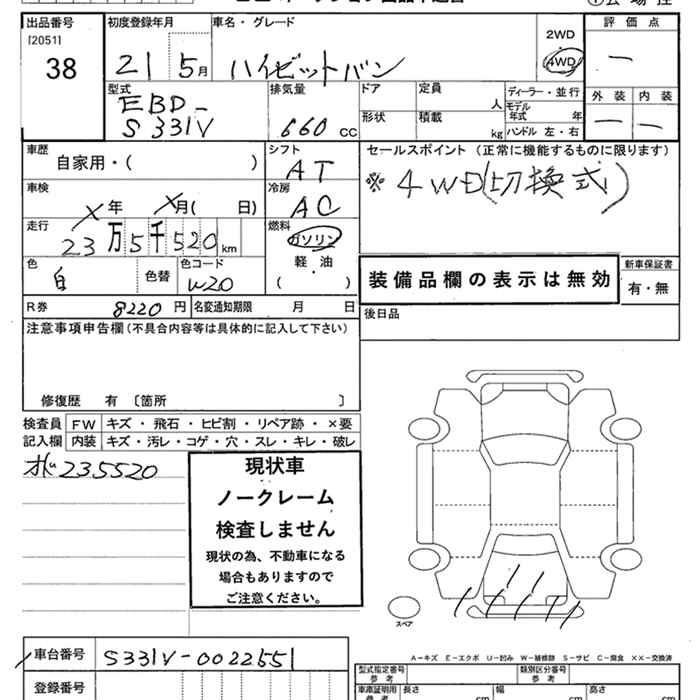 出品番号 初度登録年月 車名・グレード 評価点
[2051]
38 21 5月 ハイゼットバン 2WD 4WD ー
型式 排気量 ドア 定員 人 ディーラー・並行 外装 内装
EBD-
S331V 660 CC 形状 積載 kg モデル年式 年 ハンドル 左・右 ー ー
車歴 シフト セールスポイント (正常に機能するものに限ります)
自家用・( ) AT ※ 4WD(切換式)
車検 冷房
X年 X月( 日) AC
走行 燃料
23万5千520km ガソリン
軽・油
( )
色 色替 色コード
白 W20
装備品欄の表示は無効 新車保証書 有・無
R券 8220円 名変通知期限 月 日 後日品
注意事項申告欄 (不具合内容等は具体的に記入して下さい)
修復歴 有 〔箇所 〕
検査員 FW キズ・飛石・ヒビ割・リペア跡・×要
記入欄 内装 キズ・汚レ・コゲ・穴・スレ・キレ・破レ
235520
現状車
ノークレーム
検査しません
現状の為、不動車になる
場合もありますので
ご注意ください。
スペア
車台番号 S331V-0022551
A-キズ E-エクボ U-凹み W-補修跡 S-サビ C-腐食 XX-交換済
登録番号
型式指定番号 参考 類別区分番号 参考
車庫証明用 参考 長さ cm 幅 cm 高さ cm